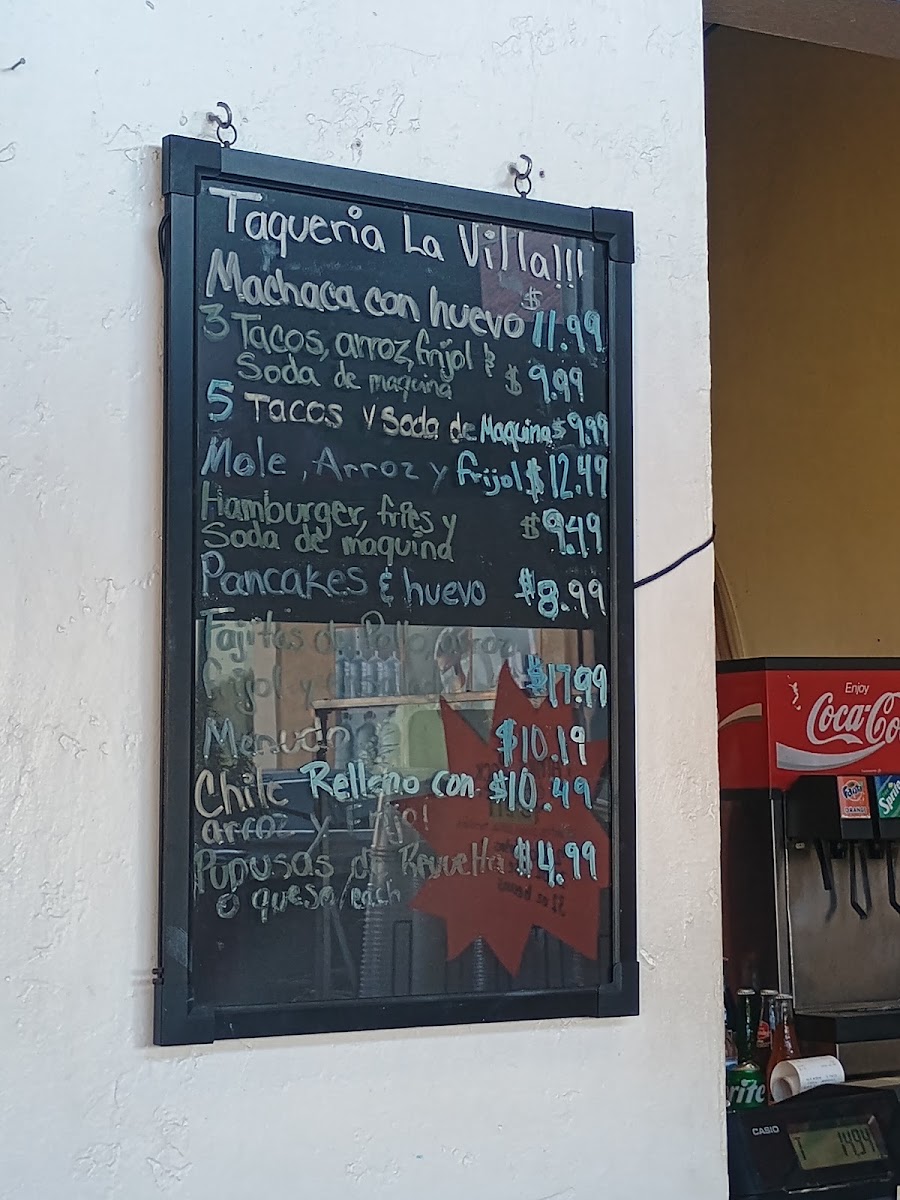 Taqueria La Villa!!!
Machaca con huevo $11.99
3 Tacos, arroz, frijol &
Soda de maquina $9.99
5 Tacos y Soda de Maquina $9.99
Mole, Arroz y frijol $12.49
Hamburger, fries y
Soda de maquina $9.49
Pancakes & huevo $8.99
Fajitas de Pollo, arroz
frijol y $17.99
Menudo $10.19
Chile Relleno con $10.49
arroz y Frijol
Pupusas de Revuelta $4.99
o queso/each
Enjoy
Coca-Co
Fanta
ORANGE
Sprite
rite
CASIO
T 14.94